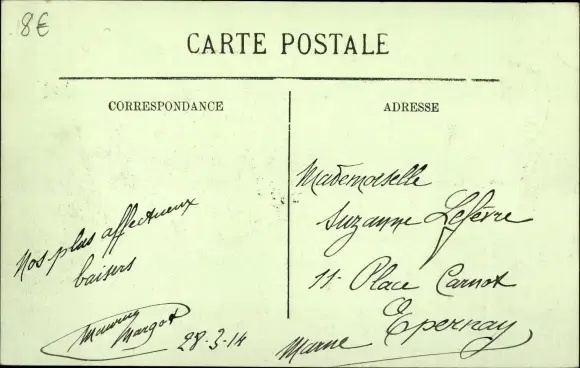 8€
CARTE POSTALE
CORRESPONDANCE
Nos plus affectueux
baisers
Margot
28-3-14
ADRESSE
Mademoiselle
Suzanne Lefèvre
11 Place Carnot
Epernay
Marne